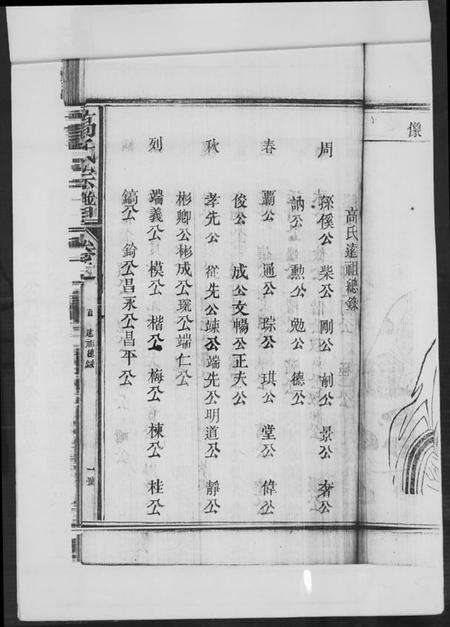 像
高氏遠祖總錄
周 孫傒公 柴公 剛公 創公 景公 奢公
訥公 勲公 勉公 德公
春 覇公 通公 琮公 琪公 堂公 偉公
俊公 成公 文暢公 正夫公
秋 孝先公 從先公 竦公 端先公 明道公 靜公
彬卿公 彬成公 珫公 端仁公
列 端義公 模公 楷公 梅公 棟公 桂公
鎬公 錀公 昌永公 昌平公
高氏宗譜
遠祖總錄
一